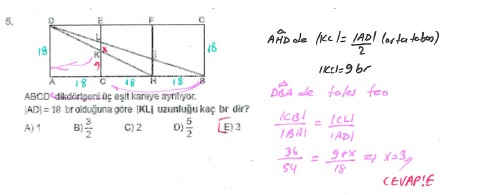 5.
D E F C
L
K x
18 9 18
A C H B
18 18 18
ABCD dikdörtgeni üç eşit kareye ayrılıyor.
|AD| = 18 br olduğuna göre |KL| uzunluğu kaç br dir?
A) 1 B) 3/2 C) 2 D) 5/2 E) 3
AHD de |KL| = |AD|/2 (orta taban)
|KC| = 9 br
DBA de tales teo
|CB|/|BA| = |CL|/|AD|
36/54 = 9+x/18 ⇒ x=3
CEVAP: E